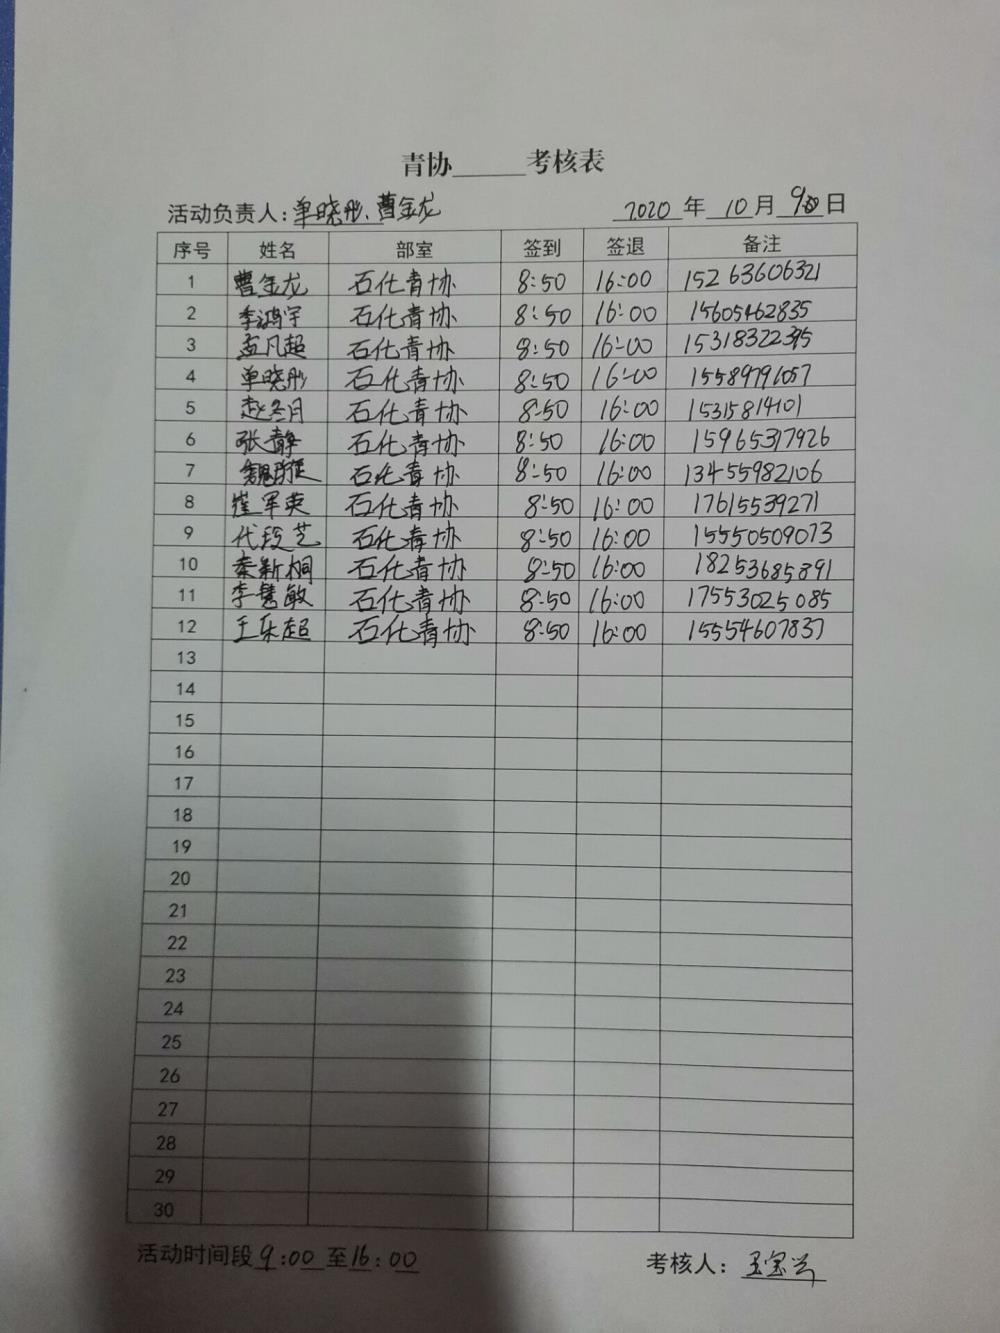 青协______考核表
活动负责人:单晓彤、曹金龙 2020 年 10 月 9 日
序号 姓名 部室 签到 签退 备注
1 曹金龙 石化青协 8:50 16:00 15263606321
2 李鸿宇 石化青协 8:50 16:00 15605462835
3 孟凡超 石化青协 8:50 16:00
4 单晓彤 石化青协 8:50 16:00 15589791657
5 赵冬月 石化青协 8:50 16:00 15315814101
6 张静 石化青协 8:50 16:00 15965317926
7 石化青协 8:50 16:00 13455982106
8 崔军英 石化青协 8:50 16:00 17615539271
9 代段艺 石化青协 8:50 16:00 15550509073
10 秦新桐 石化青协 8:50 16:00 18253685891
11 李隽敏 石化青协 8:50 16:00 17553025085
12 王乐超 石化青协 8:50 16:00 15554607837
13
14
15
16
17
18
19
20
21
22
23
24
25
26
27
28
29
30
活动时间段 9:00 至 16:00 考核人:王宝兴